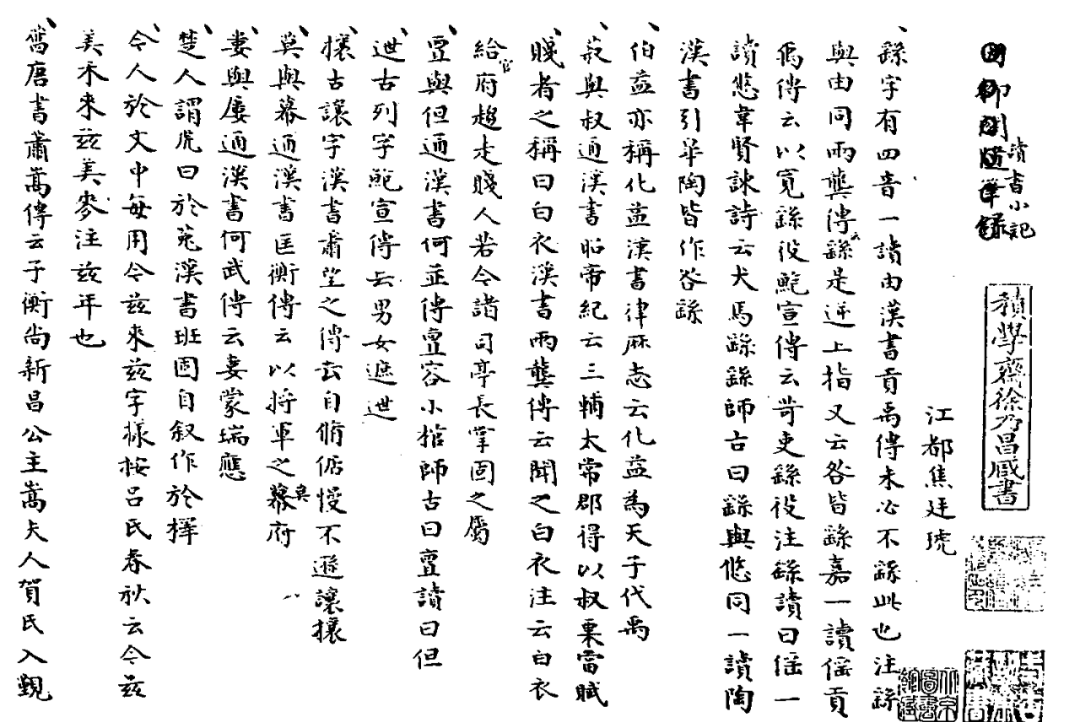 讀書小記
積學齋徐乃昌藏書
江都焦廷琥
繇字有四音一讀由漢書貢禹傳未必不繇此也注繇
與由同兩龔傳繇是逆上指又云咎皆繇嘉一讀傜貢
禹傳云以寬繇役鮑宣傳云苛吏繇役注繇讀曰傜一
讀悠韋賢諫詩云犬馬繇繇師古曰繇與悠同一讀陶
漢書引皋陶皆作咎繇
伯益亦稱化益漢書律厤志云化益為天子代禹
菽與叔通漢書昭帝紀云三輔太常郡得以叔粟當賦
賤者之稱曰白衣漢書兩龔傳云聞之白衣注云白衣
給官府趨走賤人若今諸司亭長掌固之屬
亶與但通漢書何並傳亶容小棺師古曰亶讀曰但
迣古列字鮑宣傳云男女遮迣
攘古讓字漢書蕭望之傳云自脩倨慢不遜讓攘
莫與幕通漢書匡衡傳云以將軍之莫府
婁與屢通漢書何武傳云婁蒙瑞應
楚人謂虎曰於菟漢書班固自叙作於檡
今人於文中每用今茲來茲字樣按呂氏春秋云今茲
美禾來茲美麥注茲年也
舊唐書蕭嵩傳云子衡尚新昌公主嵩夫人賀氏入覲